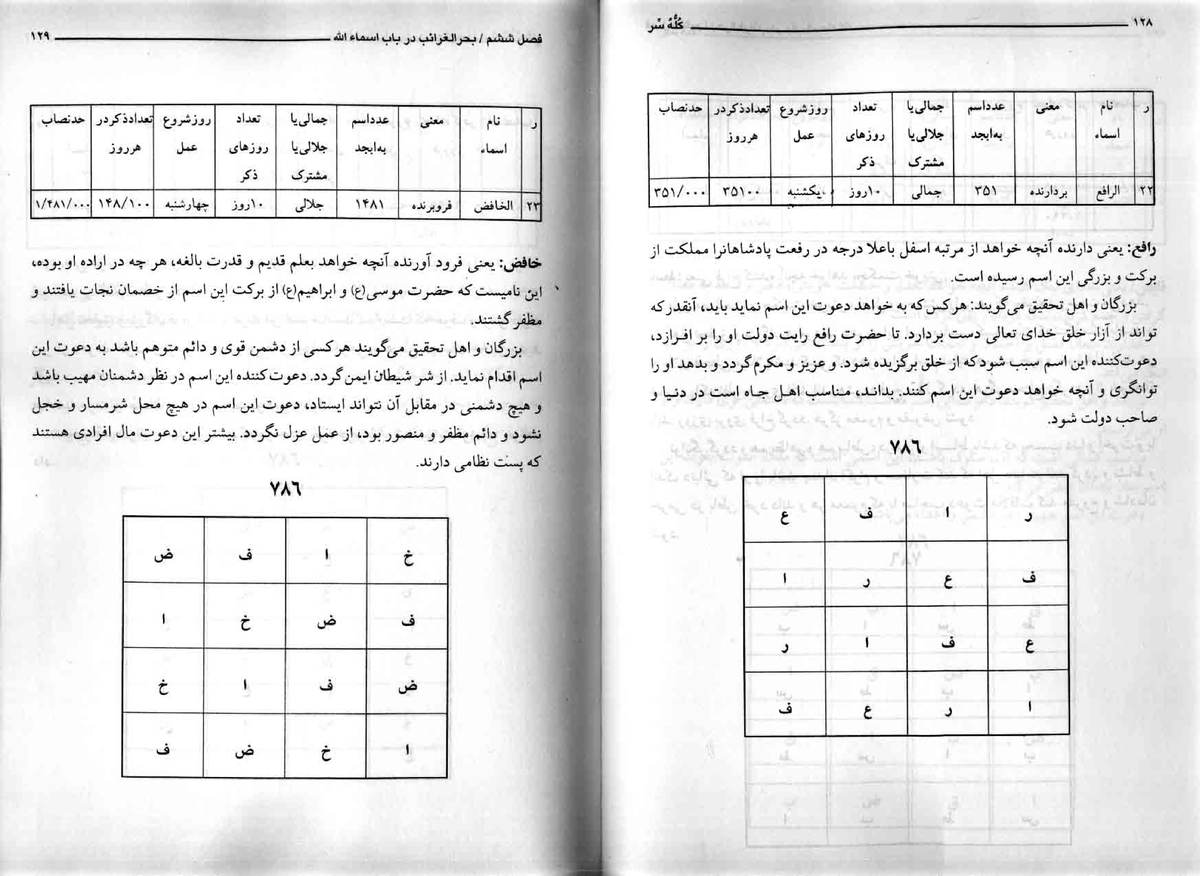 ۱۲۸ کُلُّهُ سِّر
ر نام اسماء معنی عدداسم به‌ابجد جمالی‌یا جلالی‌یا مشترک تعداد روزهای ذکر روزشروع عمل تعدادذکردر هرروز حدنصاب
۲۲ الرافع بردارنده ۳۵۱ جمالی ۱۰روز یکشنبه ۳۵۱۰۰ ۳۵۱/۰۰۰
رافع: یعنی دارنده آنچه خواهد از مرتبه اسفل باعلا درجه در رفعت پادشاهانرا مملکت از
برکت و بزرگی این اسم رسیده است.
بزرگان و اهل تحقیق می‌گویند: هرکس که به خواهد دعوت این اسم نماید باید، آنقدر که
تواند از آزار خلق خدای تعالی دست بردارد. تا حضرت رافع رایت دولت او را بر افرازد،
دعوت‌کننده این اسم سبب شود که از خلق برگزیده شود. و عزیز و مکرم گردد و بدهد او را
توانگری و آنچه خواهد دعوت این اسم کنند. بدانند، مناسب اهل جاه است در دنیا و
صاحب دولت شود.
۷۸۶
ر ا ف ع
ف ع ر ا
ع ف ا ر
ا ر ع ف
فصل ششم / بحرالغرائب در باب اسماء الله ۱۲۹
ر نام اسماء معنی عدداسم به‌ابجد جمالی‌یا جلالی‌یا مشترک تعداد روزهای ذکر روزشروع عمل تعدادذکردر هرروز حدنصاب
۲۳ الخافض فروبرنده ۱۴۸۱ جلالی ۱۰روز چهارشنبه ۱۴۸/۱۰۰ ۱/۴۸۱/۰۰۰
خافض: یعنی فرود آورنده آنچه خواهد بعلم قدیم و قدرت بالغه، هر چه در اراده او بوده،
این نامیست که حضرت موسی(ع) و ابراهیم(ع) از برکت این اسم از خصمان نجات یافتند و
مظفر گشتند.
بزرگان و اهل تحقیق می‌گویند هرکسی از دشمن قوی و دائم متوهم باشد به دعوت این
اسم اقدام نماید. از شر شیطان ایمن گردد. دعوت کننده این اسم در نظر دشمنان مهیب باشد
و هیچ دشمنی در مقابل آن نتواند ایستاد، دعوت این اسم در هیچ محل شرمسار و خجل
نشود و دائم مظفر و منصور بود، از عمل عزل نگردد. بیشتر این دعوت مال افرادی هستند
که پست نظامی دارند.
۷۸۶
خ ا ف ض
ف ض خ ا
ض ف ا خ
ا خ ض ف